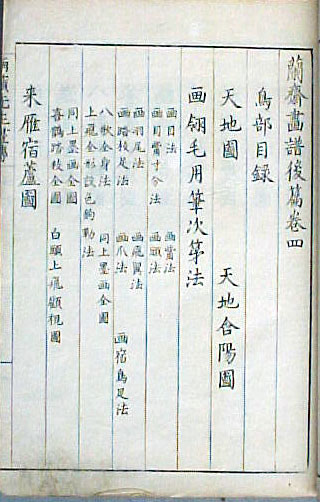 蘭齋畫譜後篇卷四
鳥部目録
天地圖 天地合陽圖
画翎毛用筆次第法
画目法 画觜法
画目觜寸分法 画頭法
画羽尾法 画飛翼法
画踏枝足法 画爪法 画宿鳥足法
八歌全身法 同上墨画全圖
上飛全形設色鉤勒法
同上墨画全圖
喜鵲踏枝全圖 白頭上飛顧視圖
来雁宿蘆圖